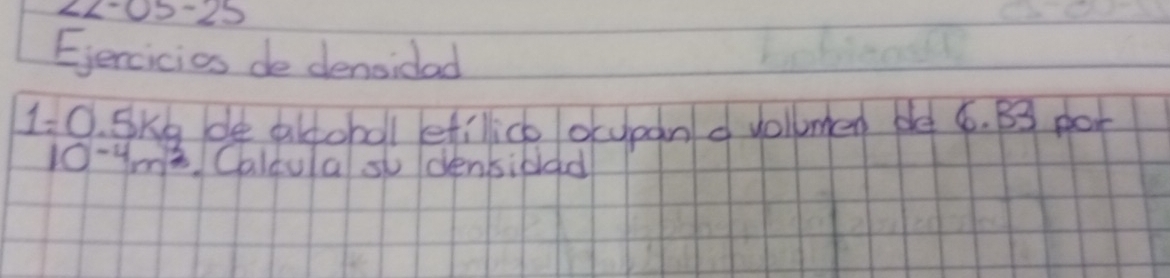 22-05-25
Ejercicios de densidad
1-0.5Kg de alcohol etílico ocupan d volumen de 6.33 por
10-4m3. Calcula su densidad